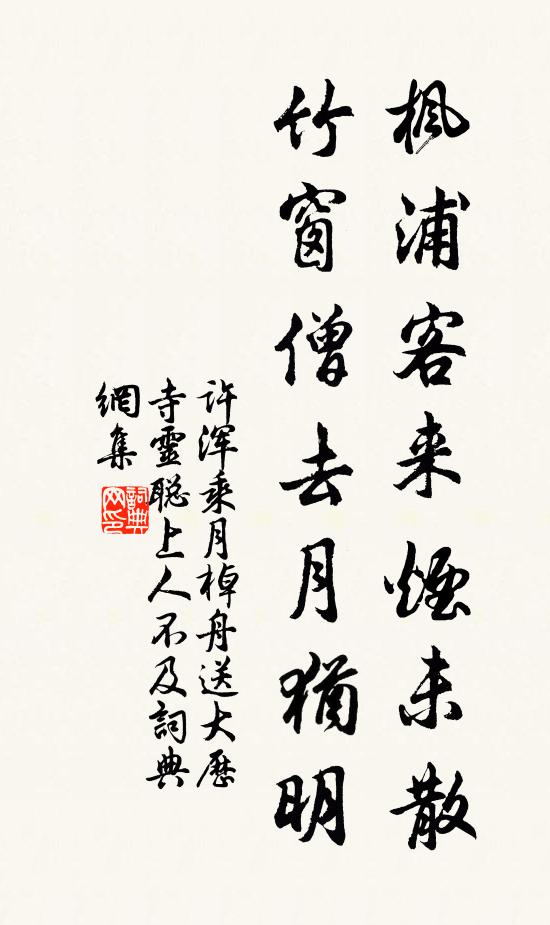 枫浦客来煙未散
竹窗僧去月猶明
许浑乘月棹舟送大历
寺靈聪上人不及詞典
網集
詞典网印